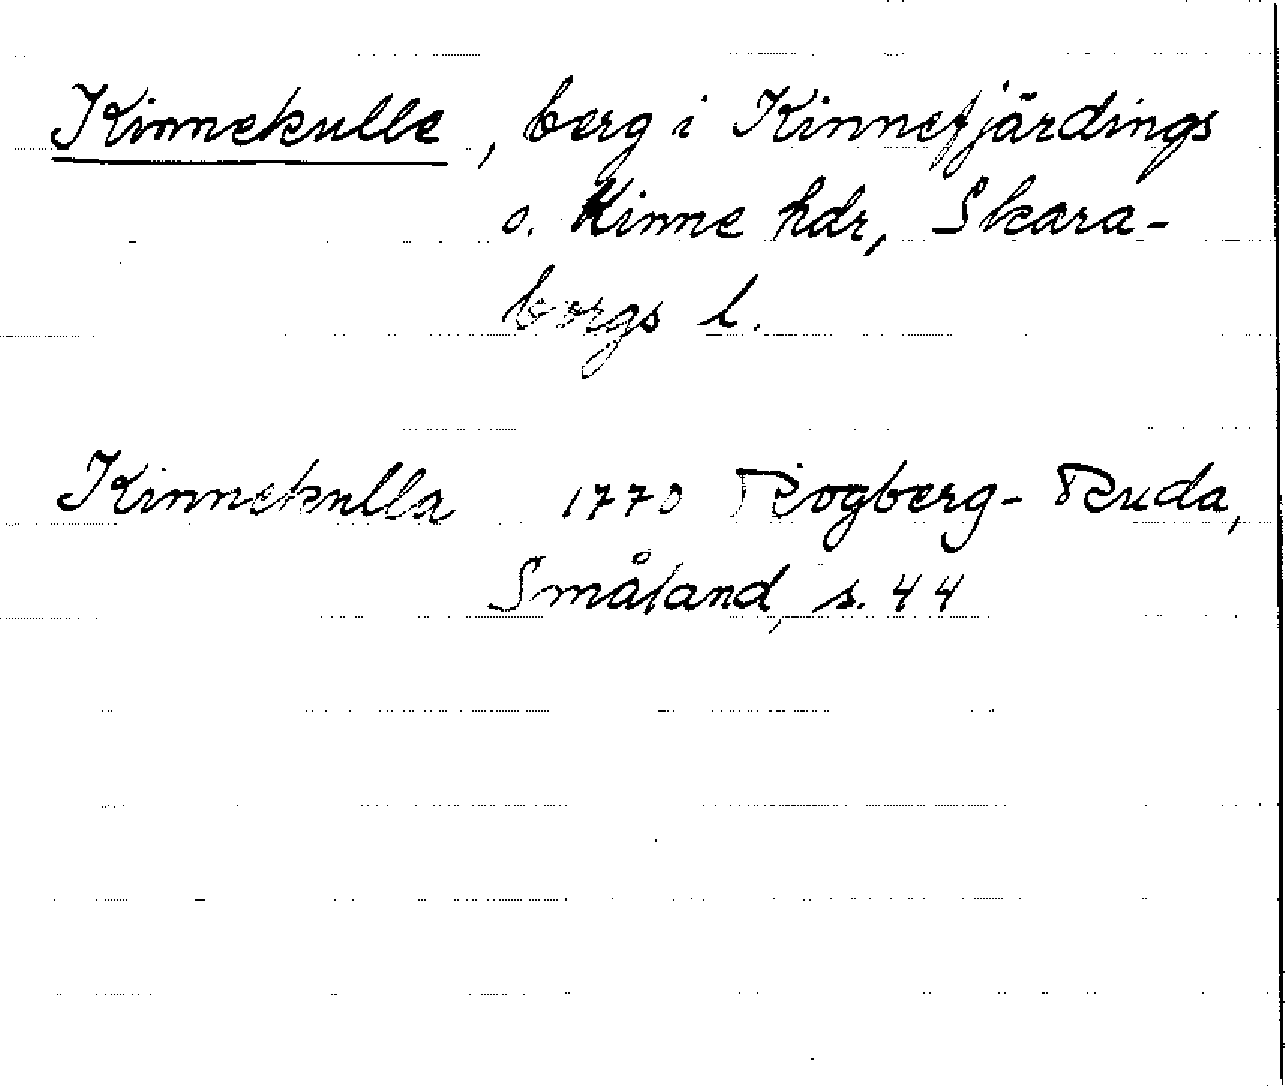 Kinnekulle, berg i Kinnefjärdings
o. Kinne hdr, Skara-
borgs l.
Kinnekulla 1770 Rogberg-Ruda,
Småland, s. 44